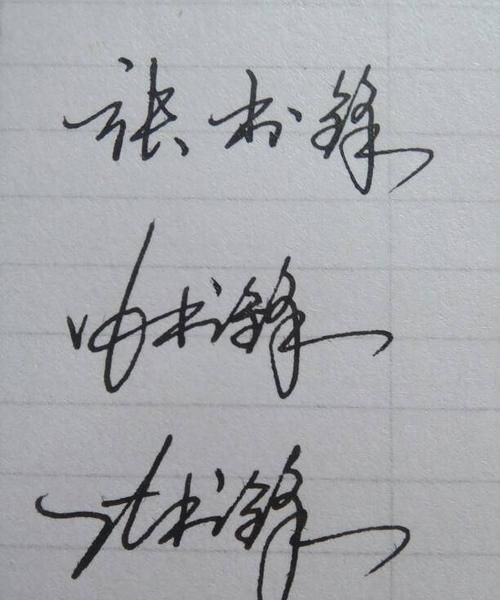 张书锋
张书锋
张书锋